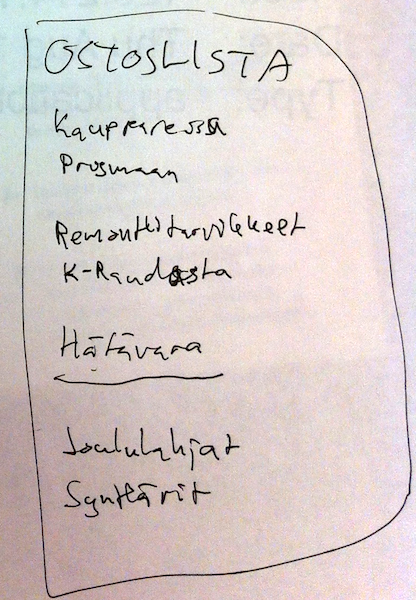 OSTOSLISTA
Kauppareissu
Prismaan
Remonttitarvikkeet
K-Raudasta
Hätävara
Joululahjat
Synttärit